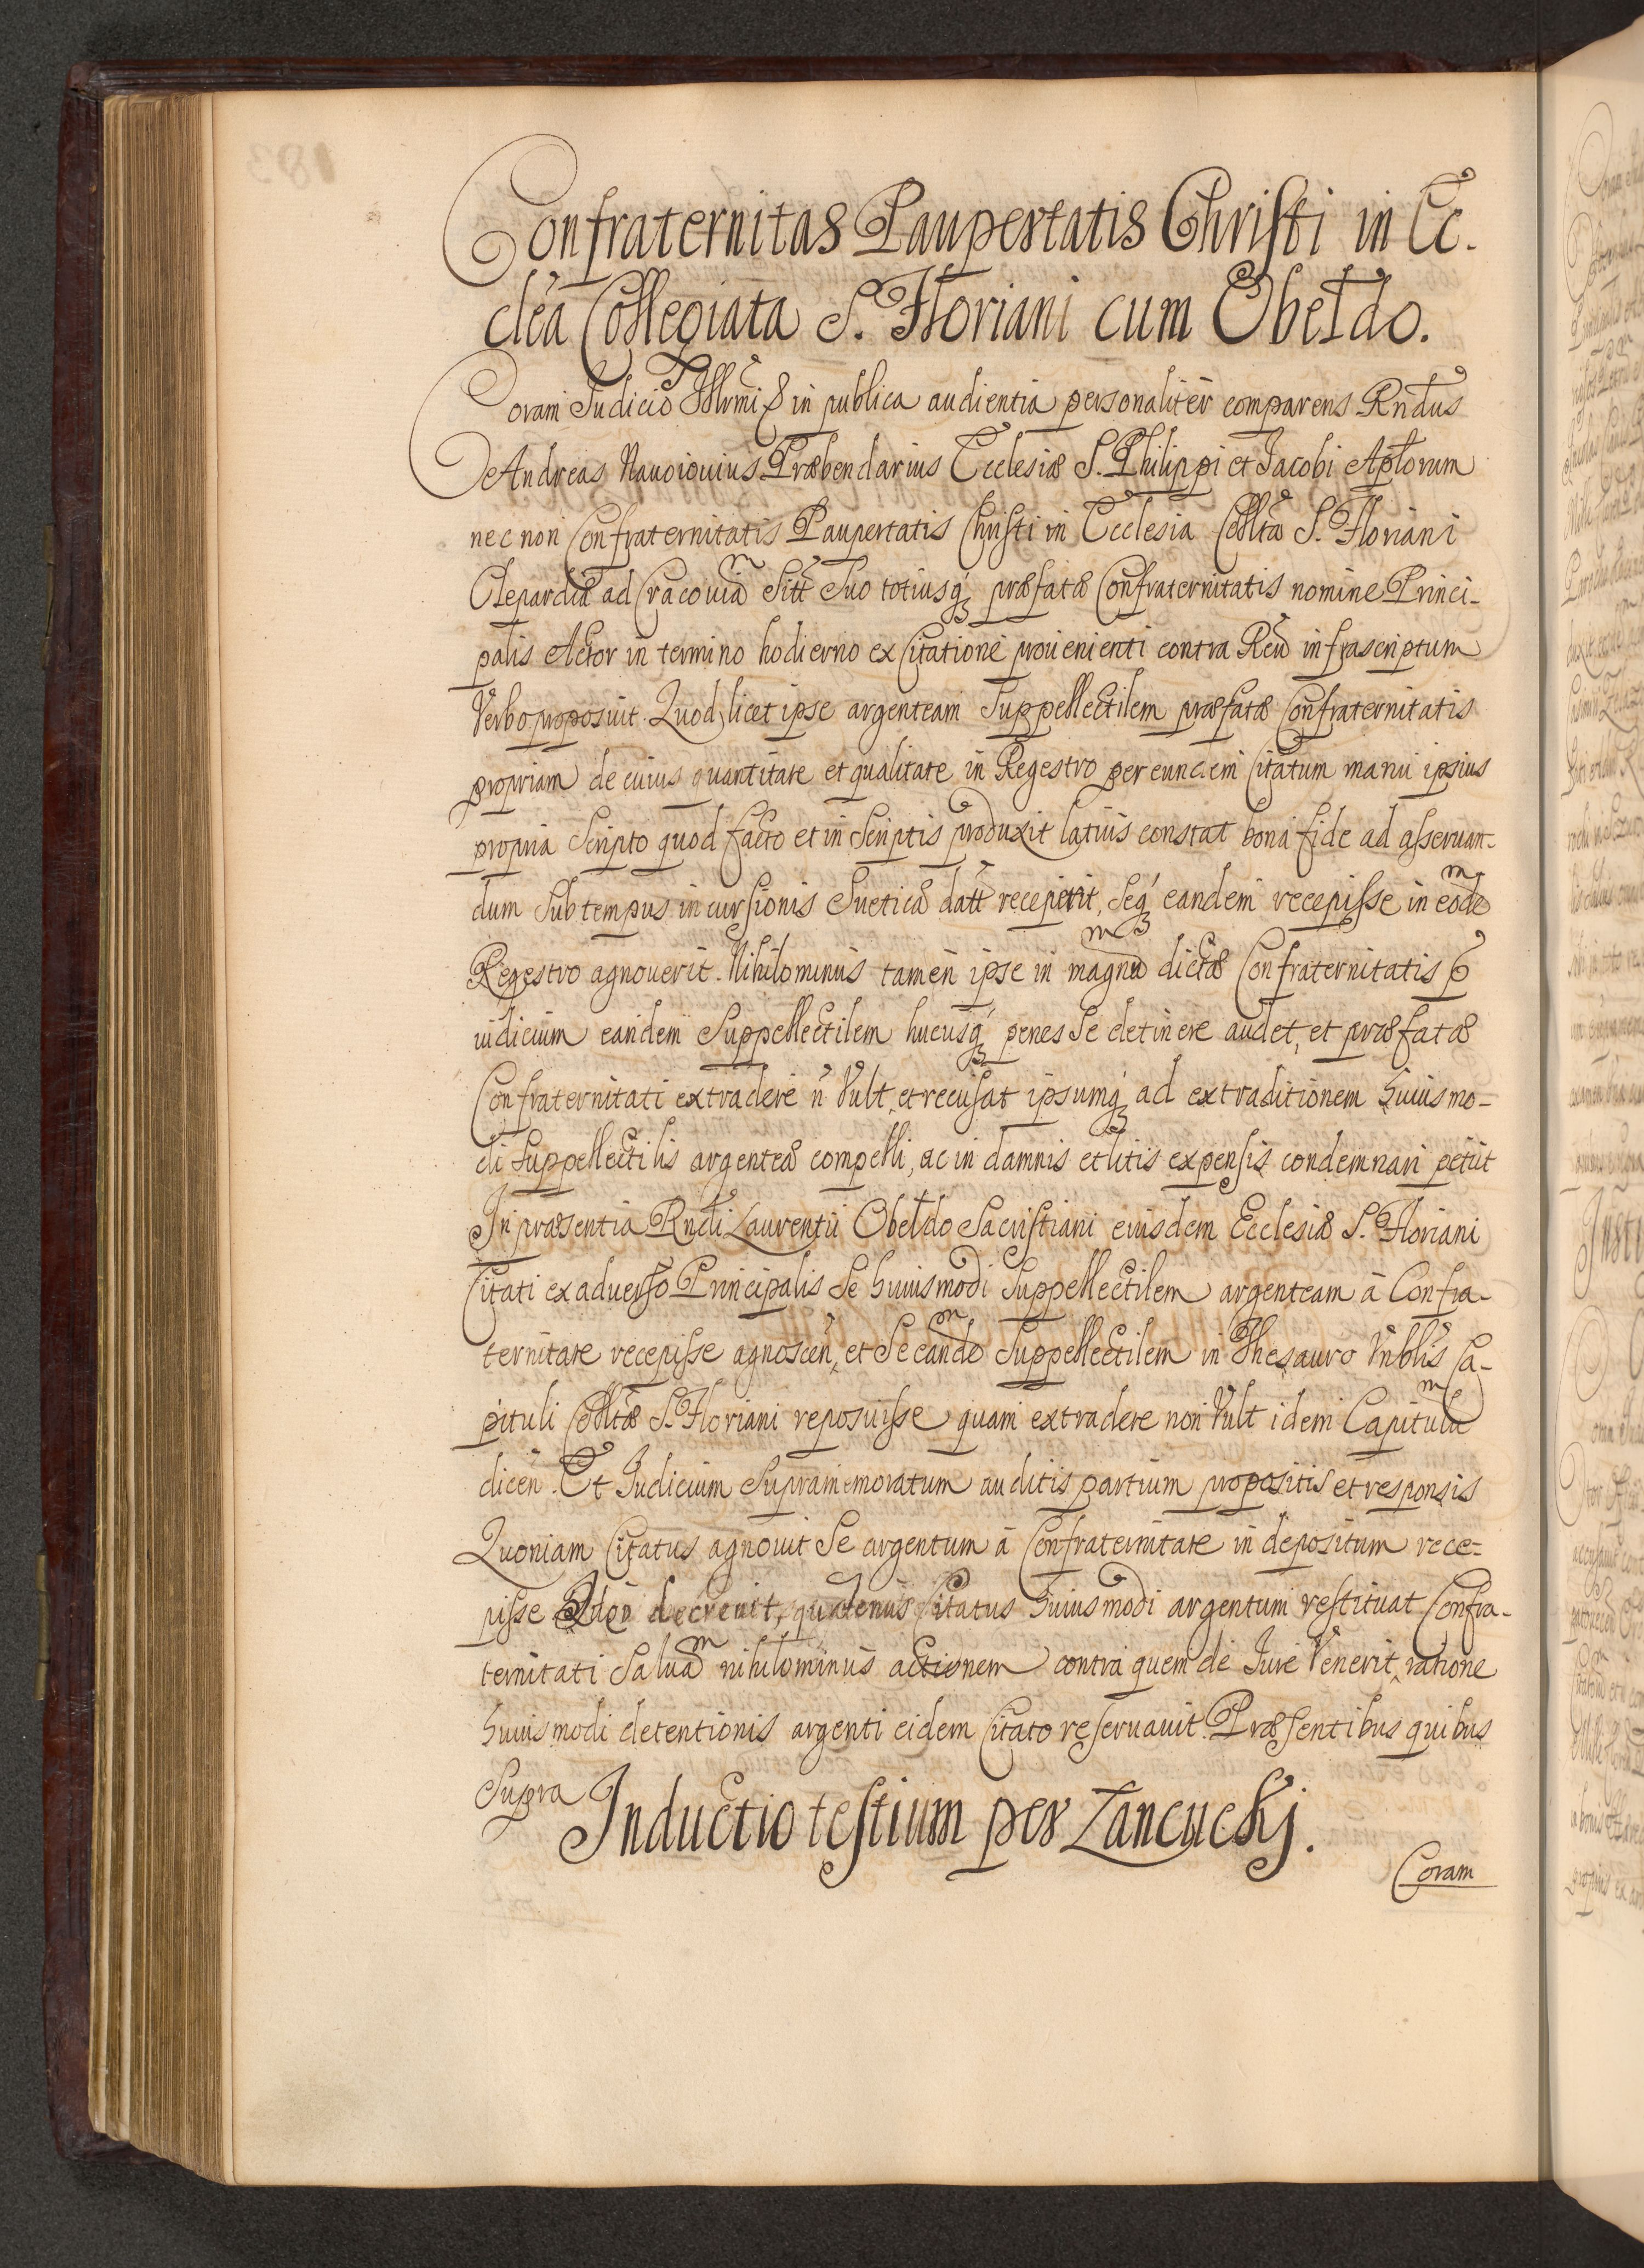 Confraternitas Paupertatis Christi in Ec-
clẽa Collegiata S. Floriani cum Obełdo.
Coram Judicio Illrmi & in publica audientia personalitèr comparens Rndus
Andreas Nauoiouius Præbendarius Ecclesiæ S. Philippi et Jacobi Aplorum
nec non Confraternitatis Paupertatis Christi in Ecclesia Colltã S. Floriani
Clepardiæ ad Cracouiã Sitt Suo totiusq́ præfatæ Confraternitatis nomine Princi-
palis Actor in termino hodierno ex Citatione prouenienti contra Reũ infrascriptum
Verbo proposuit. Quod, licet ipse argenteam Suppellectilem præfatæ Confraternitatis
propriam de cuius quantitate et qualitate in Regestro per eundem Citatum manu ipsius
propria Scripto quod facto et in Scriptis produxit latius constat bona fide ad asseruan-
dum Sub tempus incursionis Sueticæ datt receperit, Seq́ eandem recepisse in eodẽ
Regestro agnouerit. Nihilominus tamen ipse in magnũ dictæ Confraternitatis p
iudicium eandem Suppellectilem hucusq́ penes Se detinere audet, et præfatæ
Confraternitati extradere ñ Vult, et recusat ipsumq́ ad extraditionem huiusmo-
di Suppellectilis argenteæ compelli, ac in damnis et litis expensis condemnari petiit
In præsentia Rndi Laurentii Obełdo Sacristiani eiusdem Ecclesiæ S. Floriani
Citati ex aduerso Principalis Se huiusmodi Suppellectilem argenteam à Confra-
ternitate recepisse agnosceñ, et Se eandẽ Suppellectilem in Thesauro Vnblis Ca-
pituli Colltæ S. Floriani reposuisse quam extradere non Vult idem Capitulũ
diceñ. Et Judicium Supramemoratum auditis partium propositis et responsis
Quoniam Citatus agnouit Se argentum à Confraternitate in depositum rece-
pisse decreuit, quatenus Citatus huiusmodi argentum restituat Confra-
ternitati Saluã nihilominus actionem contra quem de Jure Venerit, ratione
huiusmodi detentionis argenti eidem Citato reseruauit. Præsentibus quibus
Supra
Inductio testium per Zancucki.
Coram